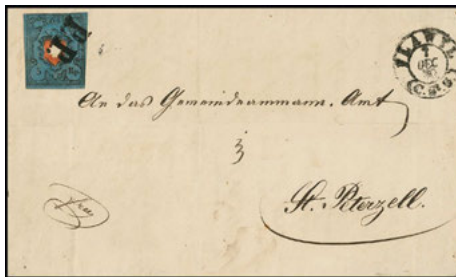 P.P.
FLAWYL
7
DEC
50
(C. St. G.)
An das Gemeindeammann-Amt
St. Peterzell.